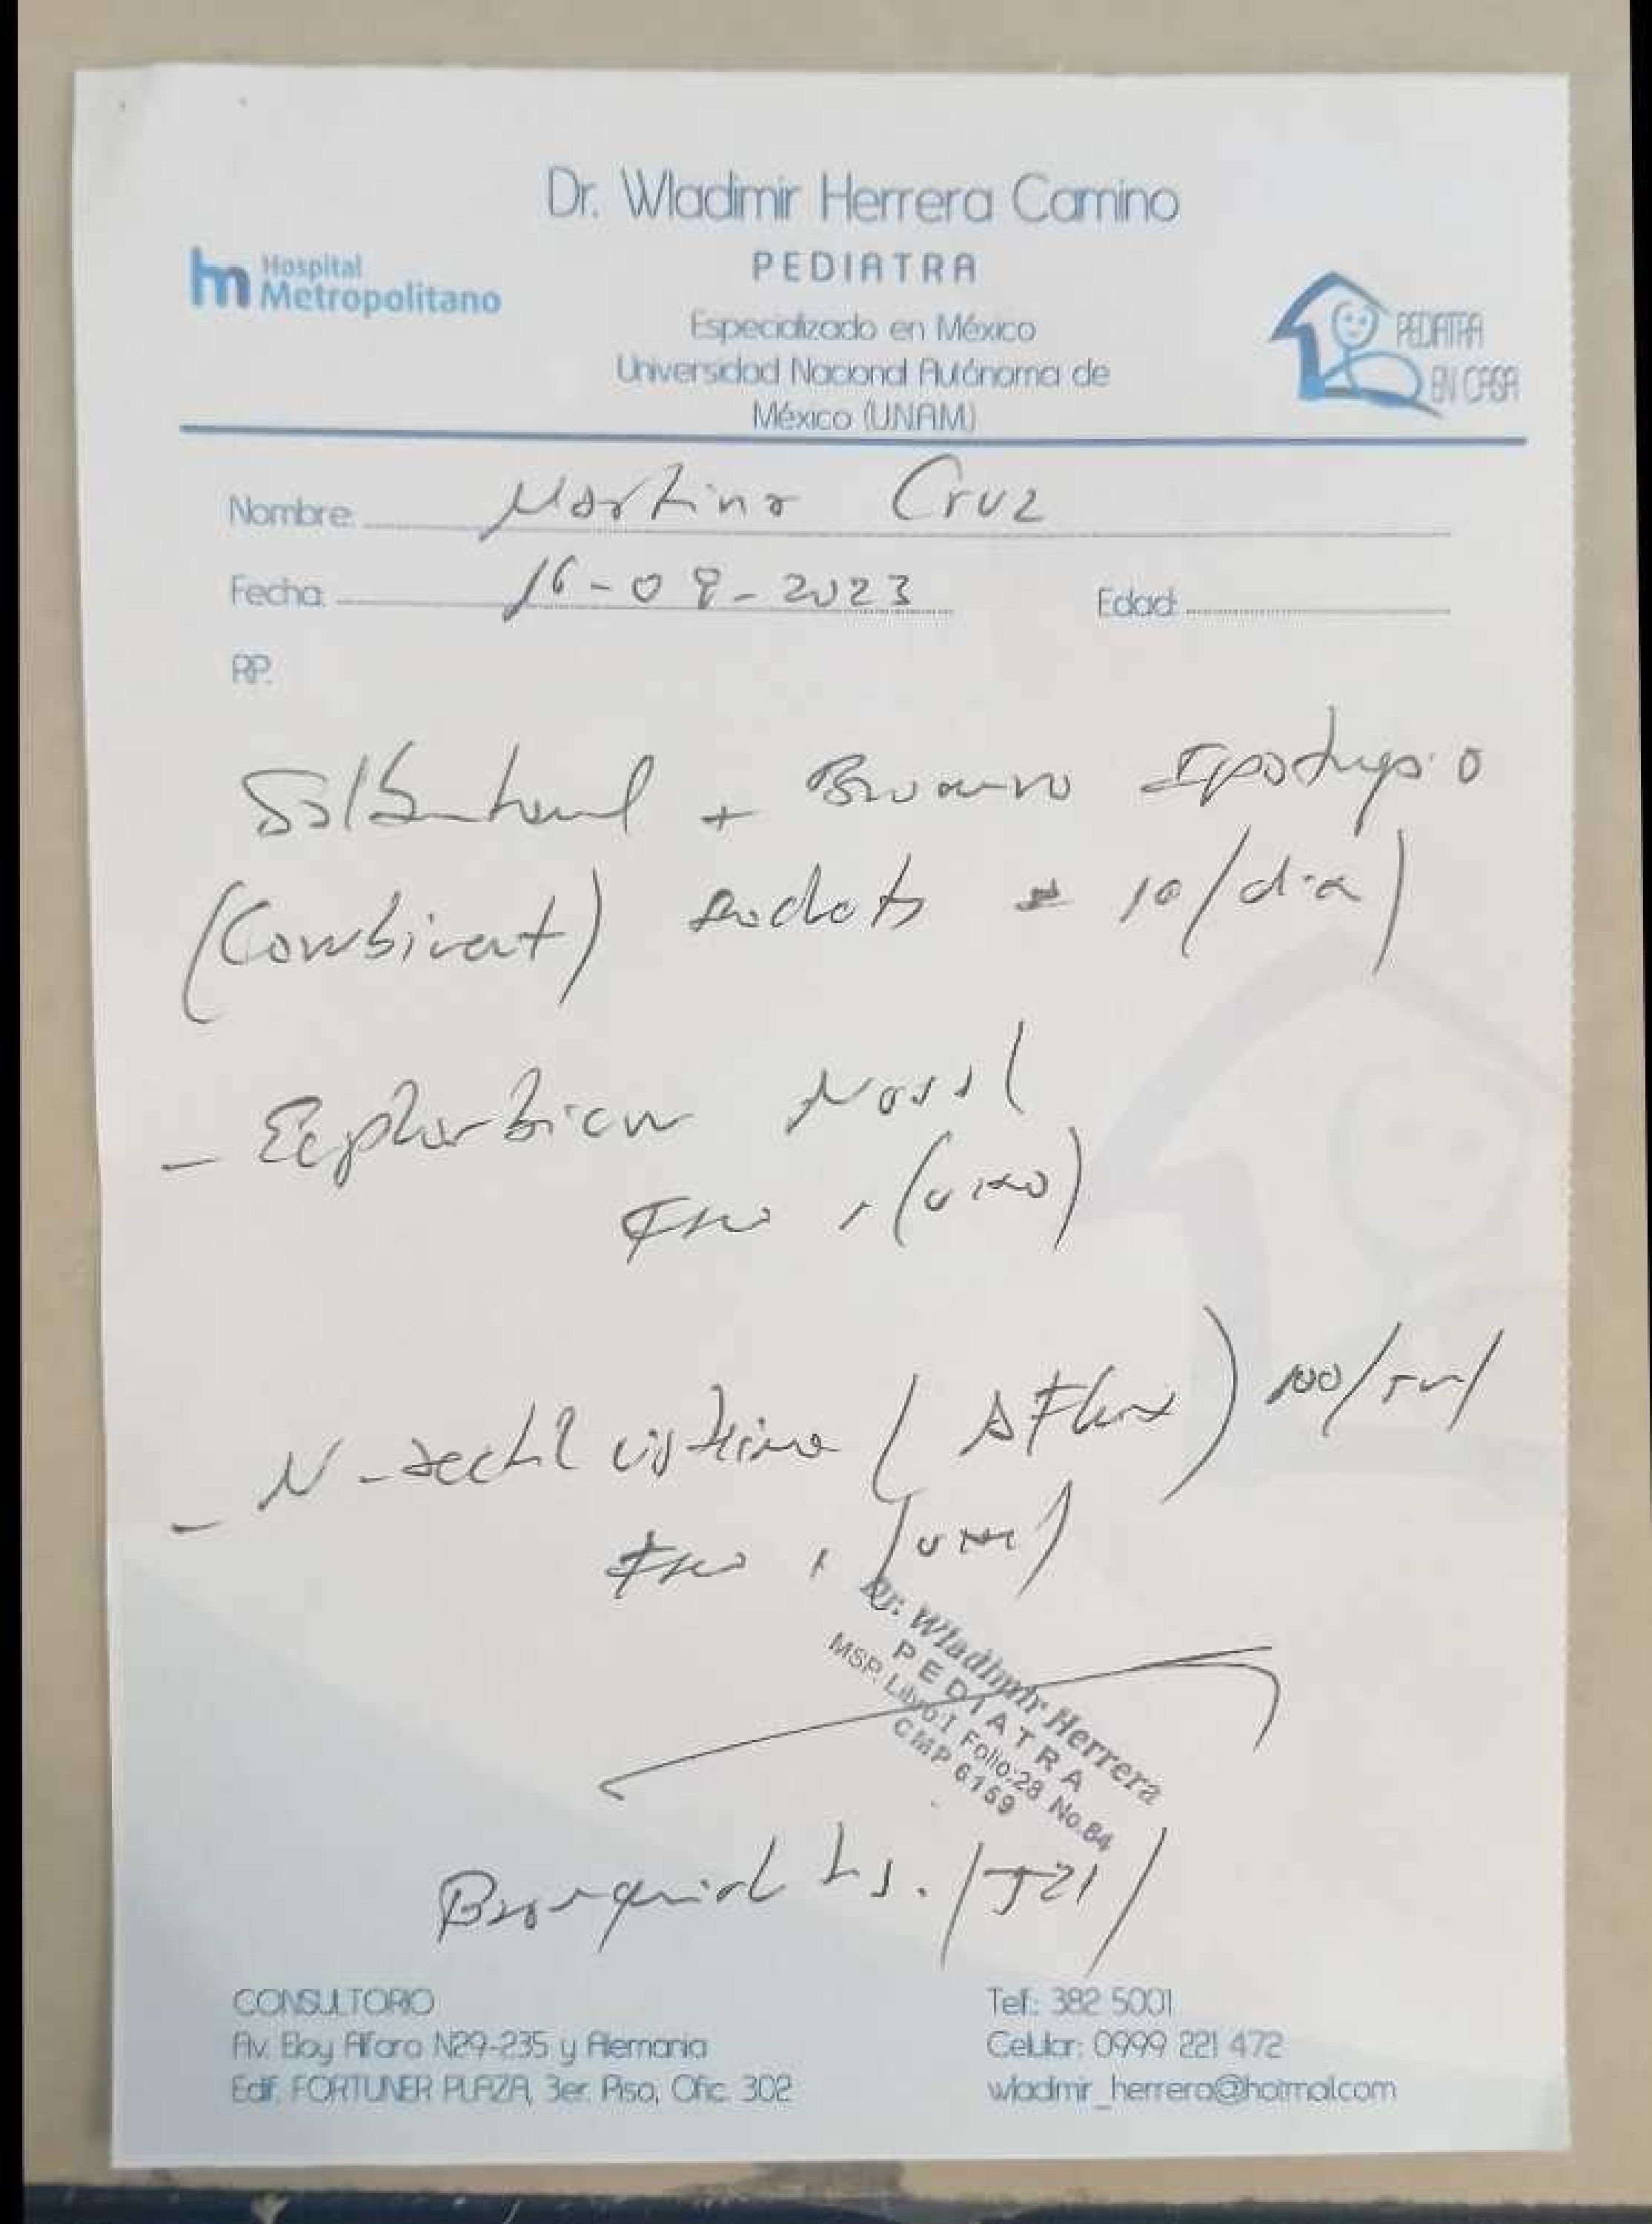 Dr. Wladimir Herrera Camino
PEDIATRA
hm Hospital Metropolitano
Especializado en México
Universidad Nacional Autónoma de
México (UNAM)
PEDIATRA
EN CASA
Nombre: Martina Cruz
Fecha: 16-08-2023 Edad:
RP.
Salbutamol + Bromuro Ipatropio
(Combivent) 10/dia)
- Euphorbium Nasal
Fco (uno)
- N-acetil cisteina (AFlux) 100/5ml
Fco (uno)
Dr. Wladimir Herrera
PEDIATRA
MSP. Libro:I Folio:28 No.84
CMP 6159
(J21)
CONSULTORIO
Av. Eloy Alfaro N29-235 y Alemania
Edif. FORTUNER PLAZA, 3er. Piso, Ofic. 302
Telf.: 382 5001
Celular: 0999 221 472
wladimir_herrera@hotmail.com